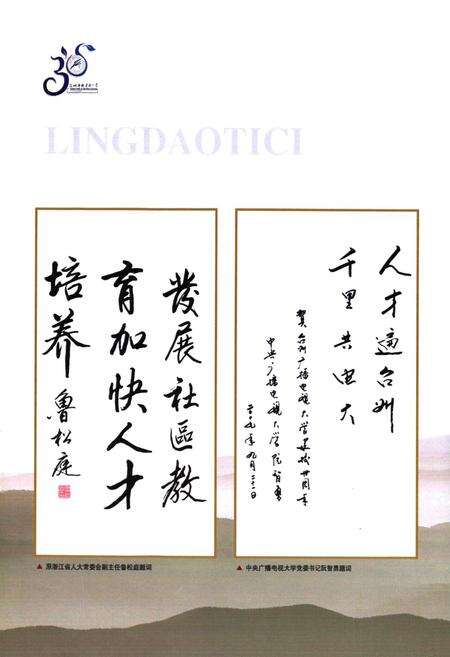 LINGDAOTICI
發展社區教
育加快人才
培养
魯松庭
人才遍台州
千里共電大
賀台州广播电视大学建校卅周年
中央广播电视大学阮智勇
二〇〇九年九月二十一日
▲ 原浙江省人大常委会副主任鲁松庭题词
▲ 中央广播电视大学党委书记阮智勇题词